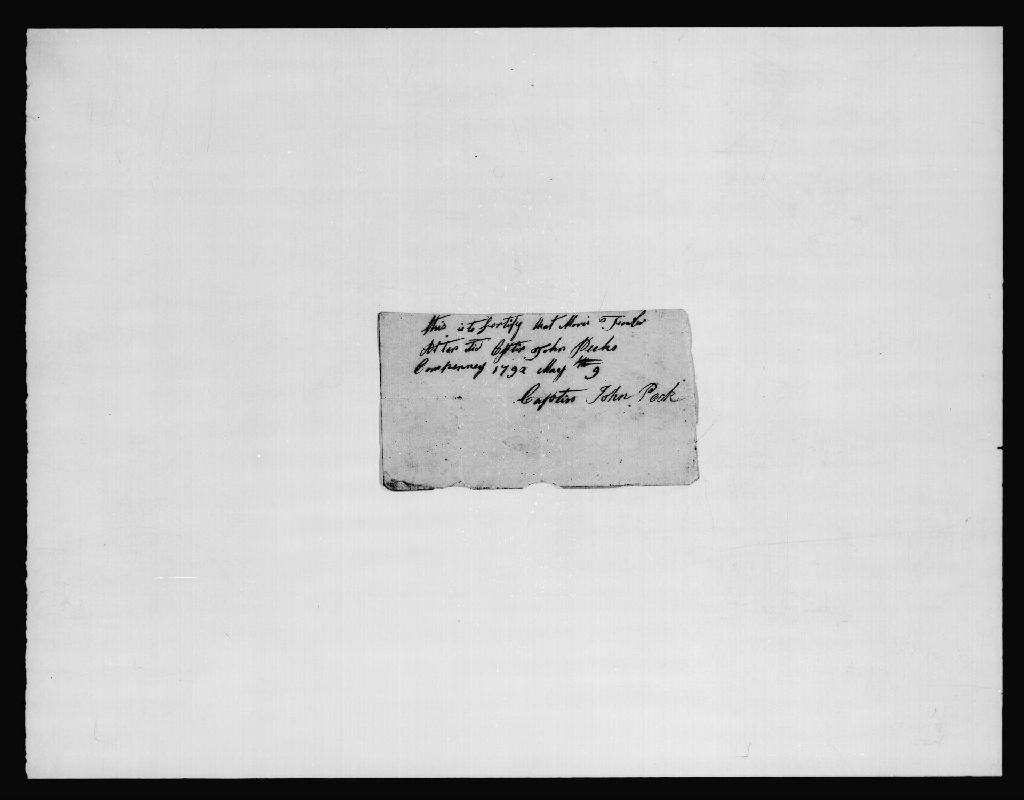 this is to sertify that Moris
Atten ded Cptin John Pecks
Compenney 1792 May th 9
Captin John Peck